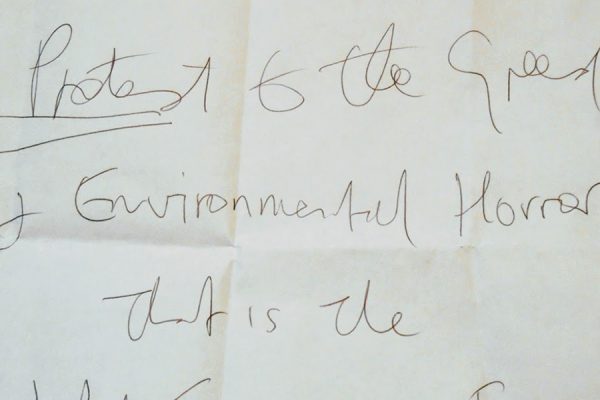 Protest to the Greed
Environmental Horror
that is the